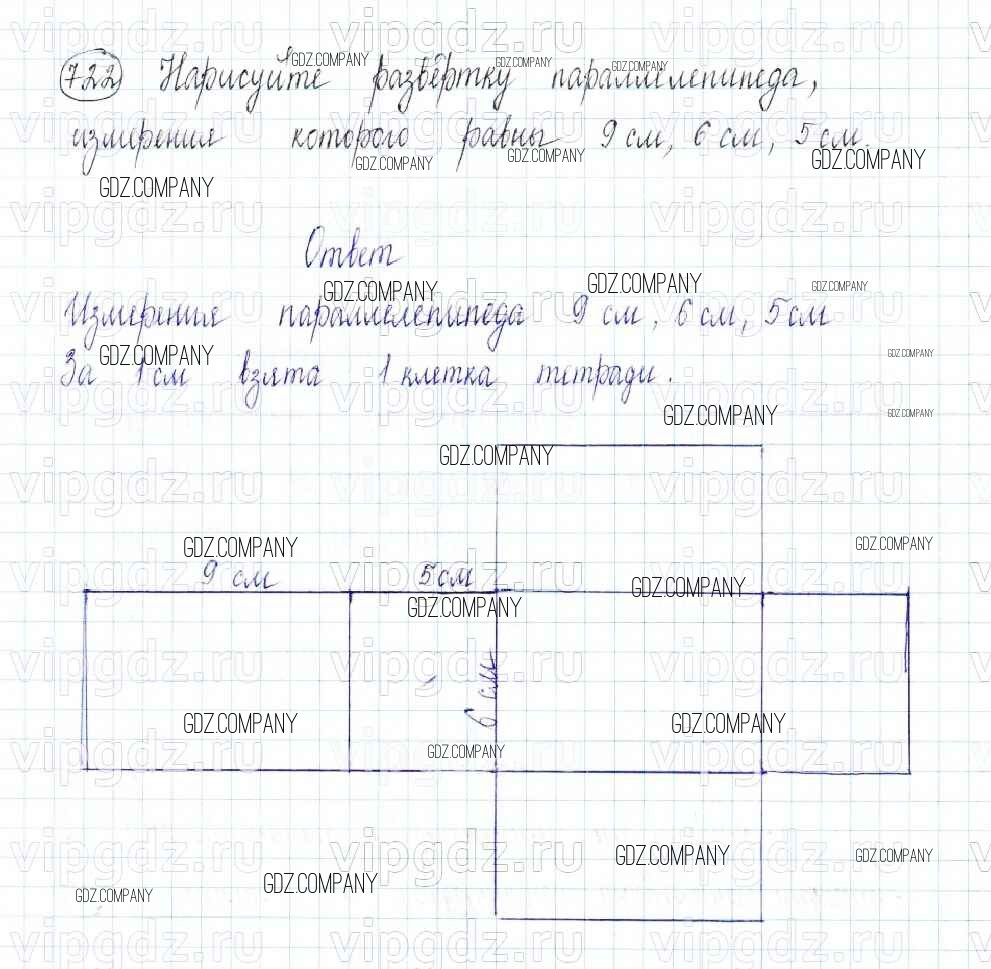 722 Нарисуйте развёртку параллелепипеда,
измерения которого равны 9 см, 6 см, 5 см.
Ответ
Измерения параллелепипеда 9 см, 6 см, 5 см
За 1 см взята 1 клетка тетради.
9 см 5 см
6 см
GDZ.COMPANY
vipgdz.ru